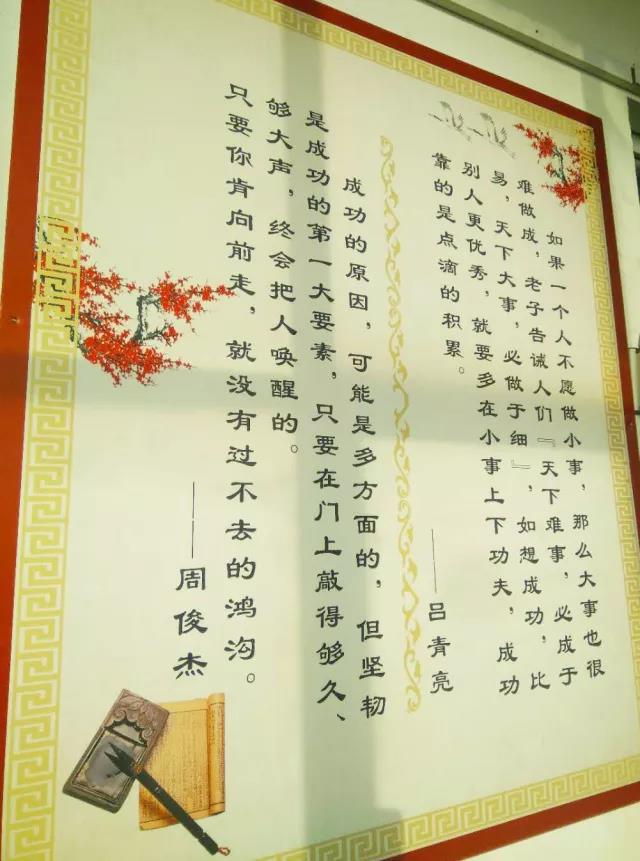 如果一个人不愿做小事，那么大事也很
难做成，老子告诫人们『天下难事，必成于
易，天下大事，必做于细』，如想成功，比
别人更优秀，就要多在小事上下功夫，成功
靠的是点滴的积累。
——吕青亮
成功的原因，可能是多方面的，但坚韧
是成功的第一大要素，只要在门上敲得够久、
够大声，终会把人唤醒的。
只要你肯向前走，就没有过不去的鸿沟。
——周俊杰